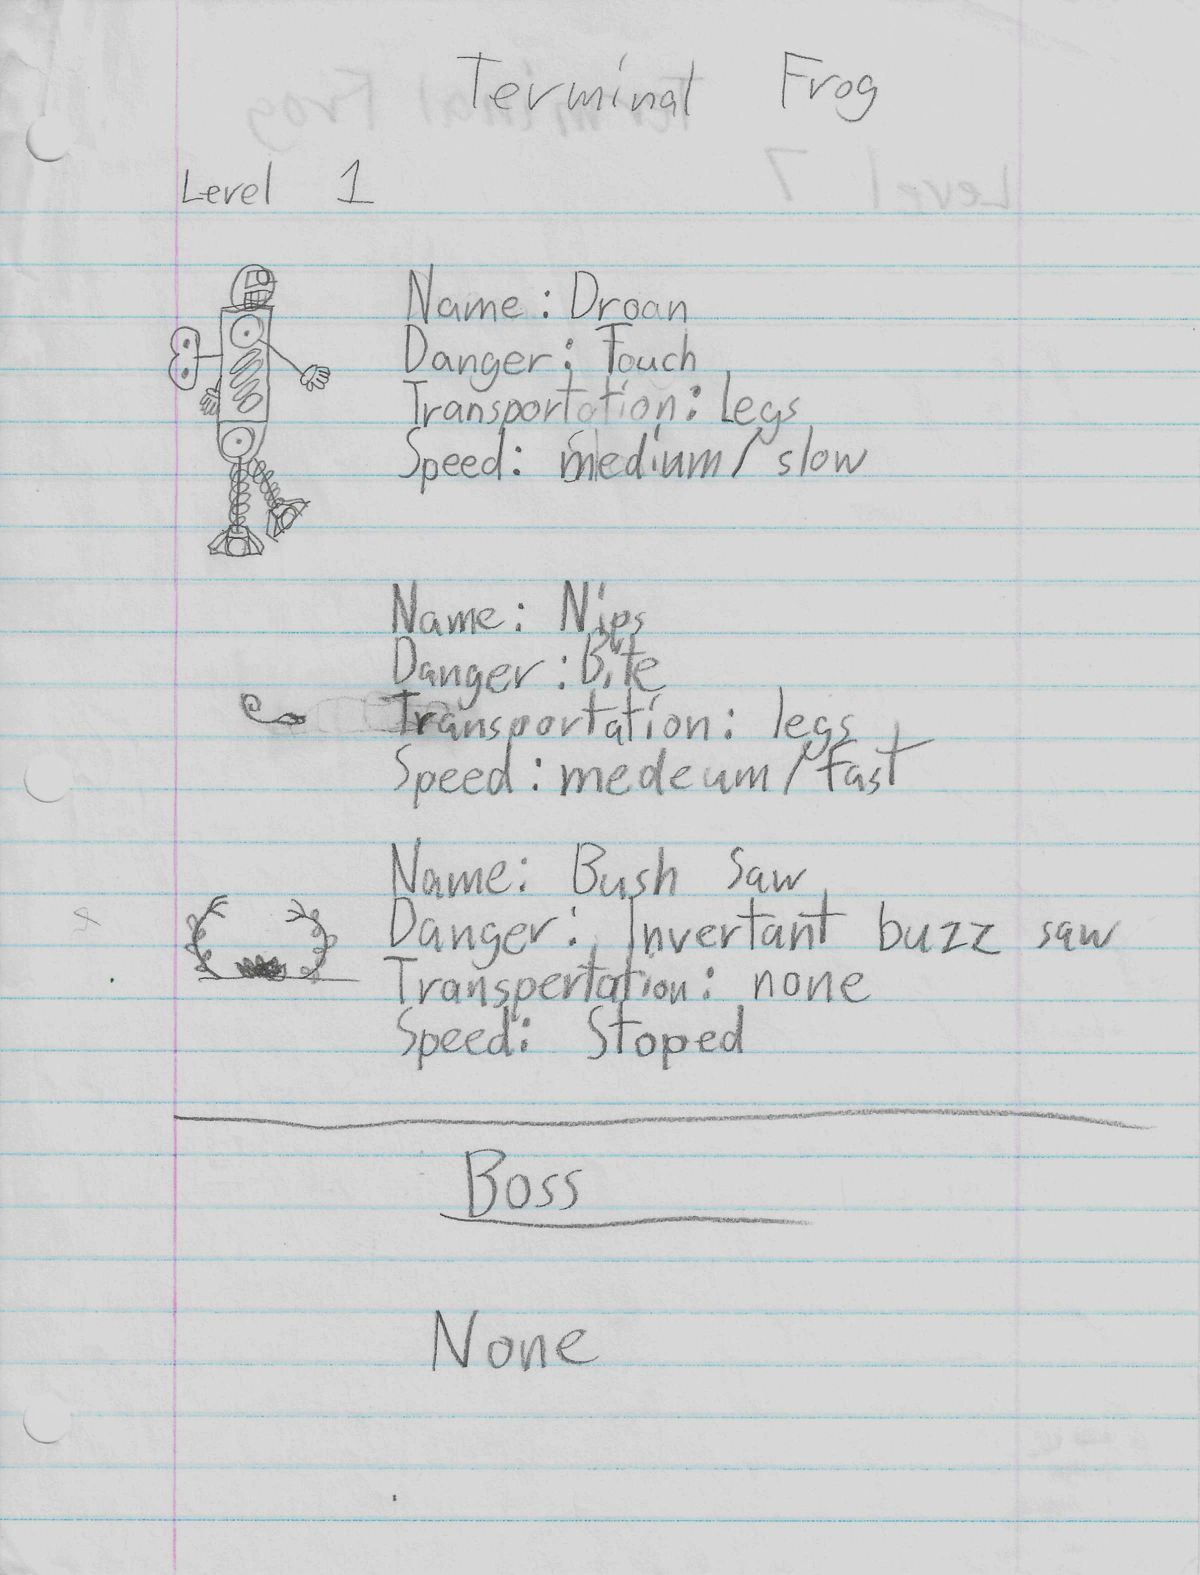 Terminal Frog
Level 1
Name: Droan
Danger: Touch
Transportation: Legs
Speed: medium/slow
Name: Nips
Danger: Bite
Transportation: legs
Speed: medeum/fast
Name: Bush Saw
Danger: Invertant buzz saw
Transpertation: none
Speed: Stoped
Boss
None